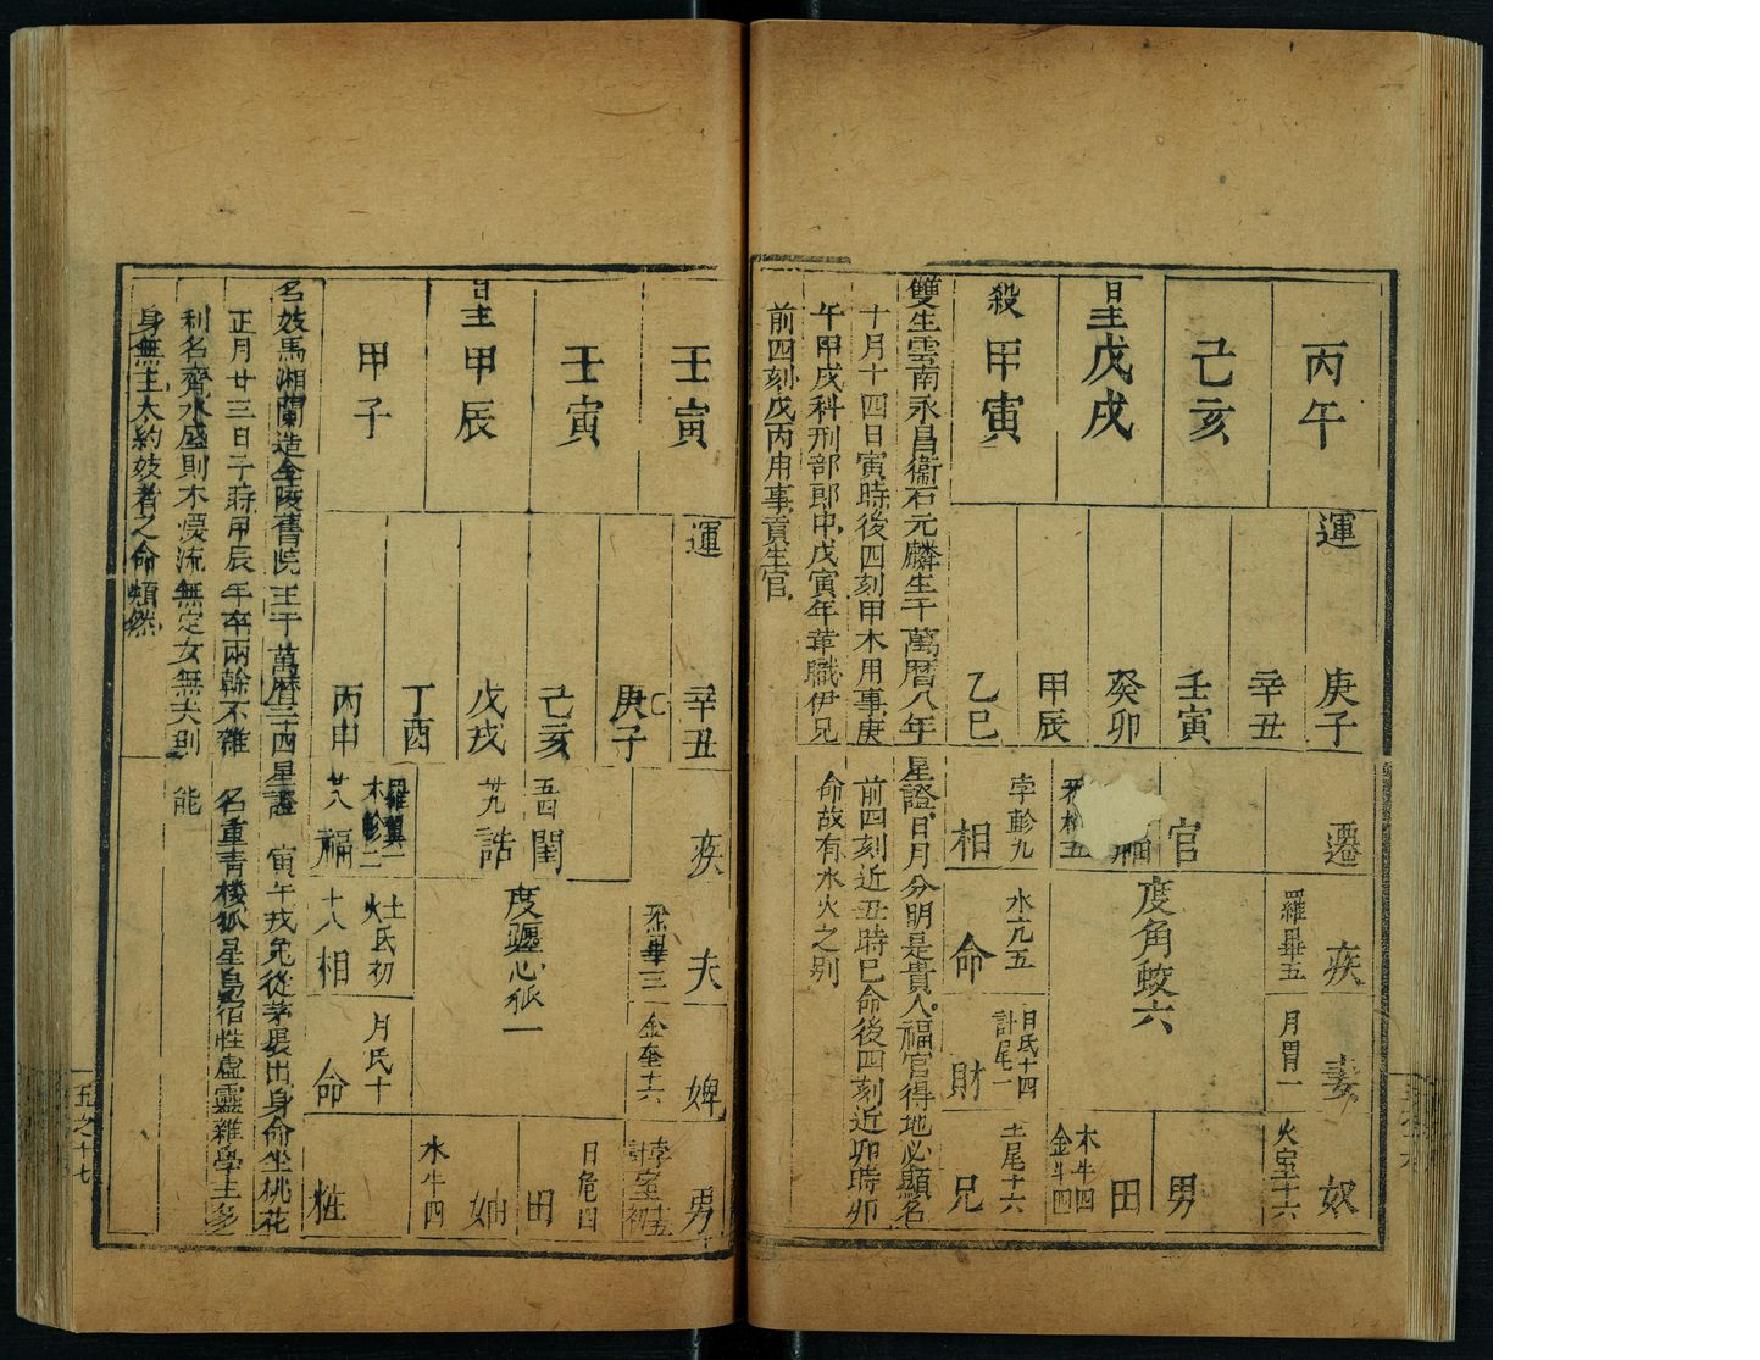 丙午
己亥
日主戊戌
殺甲寅
運
庚子
辛丑
壬寅
癸卯
甲辰
乙巳
遷
官
孛軫九
相
羅畢五
疾
度角蛟六
水亢五
命
月胃一
妻
日氐十四
計尾一
財
火室十六
奴
男
田
木牛四
金斗四
土尾十六
兄
雙生雲南永昌衞石元麟生于萬曆八年
十月十四日寅時後四刻甲木用事庚
午甲戌科刑部郎中戊寅年革職伊兄
前四刻戊丙用事貢生官
星證日月分明是貴人福官得地必顯名
前四刻近丑時巳命後四刻近卯時卯
命故有水火之别
壬寅
壬寅
日主甲辰
甲子
運
辛丑
庚子
己亥
戊戌
丁酉
丙申
疾
五四
閨
廿九
誥
羅翼一
木軫二
廿八
福
夫
度躔心狐一
土
火氐初
十八
相
金奎十六
婢
月氐十
命
男
日危四
田
妯
水牛四
粧
名妓馬湘蘭造金陵舊院生于萬曆三十四
正月廿三日子時甲辰年卒兩幹不雜
利名齊水盛則木漂流無定女無夫則
身無主大約妓者之命類然
星證 寅午戌兔從茅裏出身命坐桃花
名重青樓狐星昌宿性虛靈雜學主多
能
五之十七